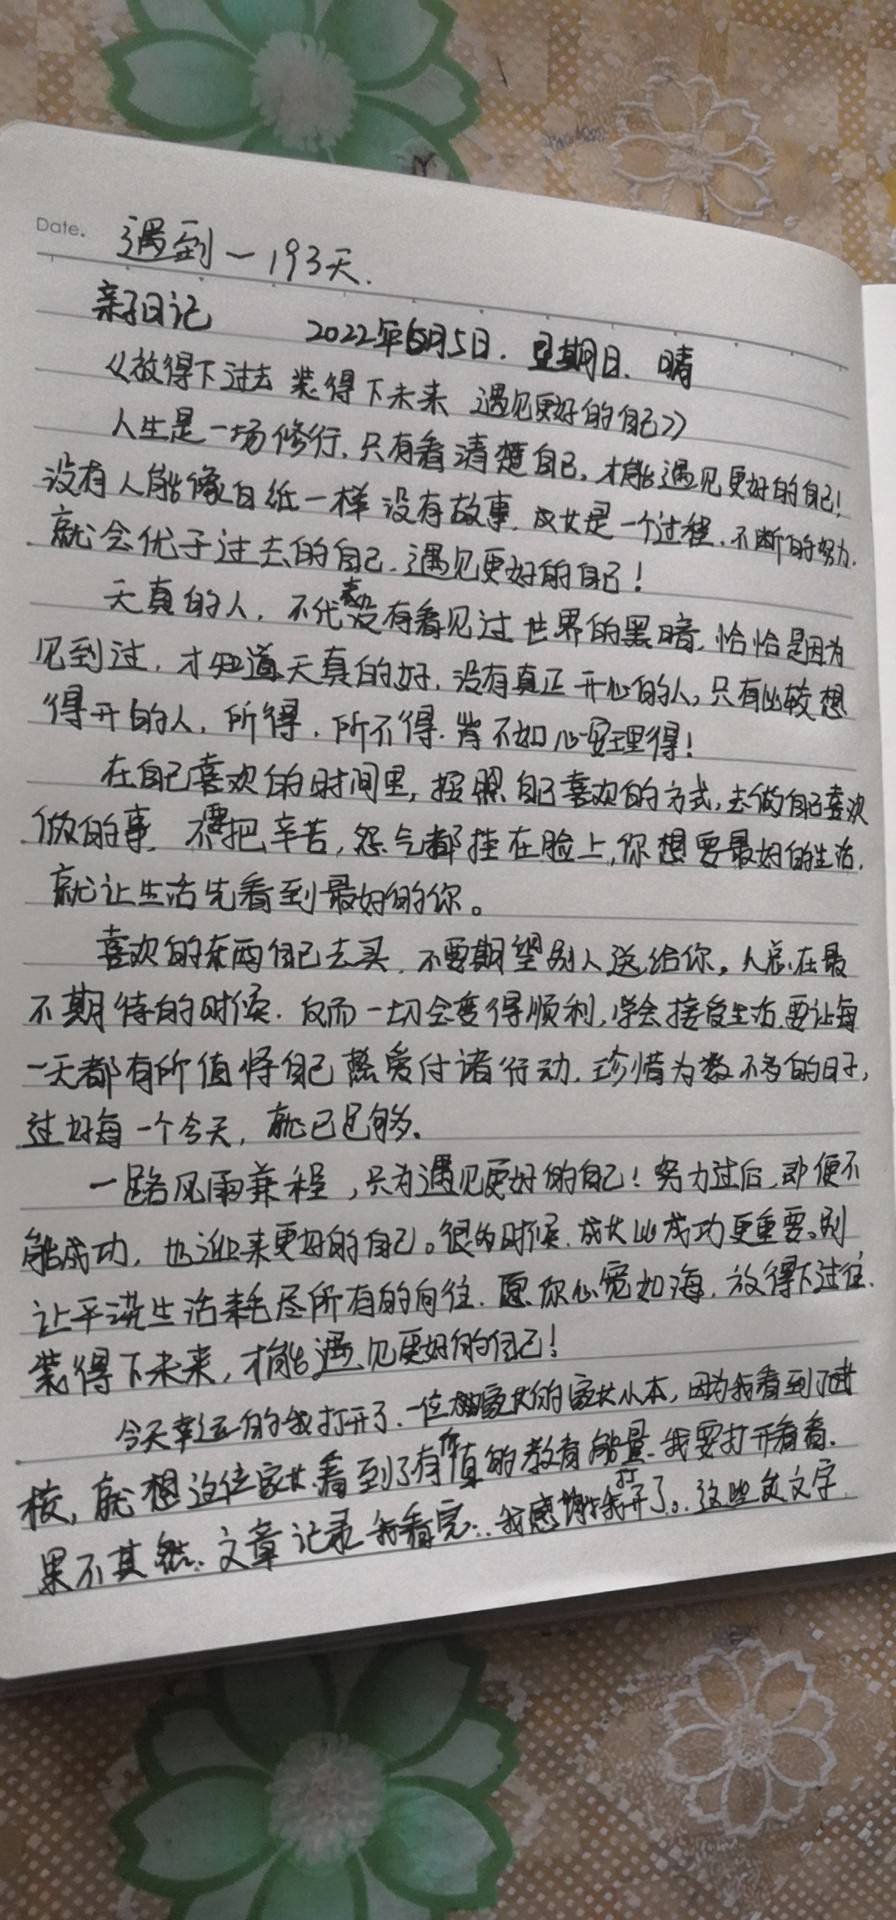 Date.
遇到一193天.
亲子日记 2022年6月5日. 星期日. 晴
《放得下过去 装得下未来 遇见更好的自己》
人生是一场修行.只有看清楚自己.才能遇见更好的自己!
没有人能像白纸一样没有故事.成长是一个过程.不断的努力.
就会优于过去的自己.遇见更好的自己!
天真的人,不代表没有看见过世界的黑暗.恰恰是因为
见到过,才知道天真的好.没有真正开心的人,只有比较想
得开的人,所得.所不得.皆不如心安理得!
在自己喜欢的时间里,按照自己喜欢的方式,去做自己喜欢
做的事.不要把辛苦,怨气都挂在脸上,你想要最好的生活.
就让生活先看到最好的你。
喜欢的东西自己去买.不要期望别人送给你。人总在最
不期待的时候.反而一切会变得顺利,学会接受生活.要让每
一天都有所值将自己热爱付诸行动.珍惜为数不多的日子,
过好每一个今天,就已足够.
一路风雨兼程,只为遇见更好的自己!努力过后.即便不
能成功,也迎来更好的自己。很多时候.成长比成功更重要。别
让平淡生活耗尽所有的向往.愿你心宽如海.放得下过往.
装得下未来,才能遇见更好的自己!
今天幸运的我打开了.一位家长的家长小本,因为我看到了
校,就想这位家长看到了有价值的教育能量.我要打开看看.
果不其然..文章记录我看完..我感谢我打开了。.这些文字